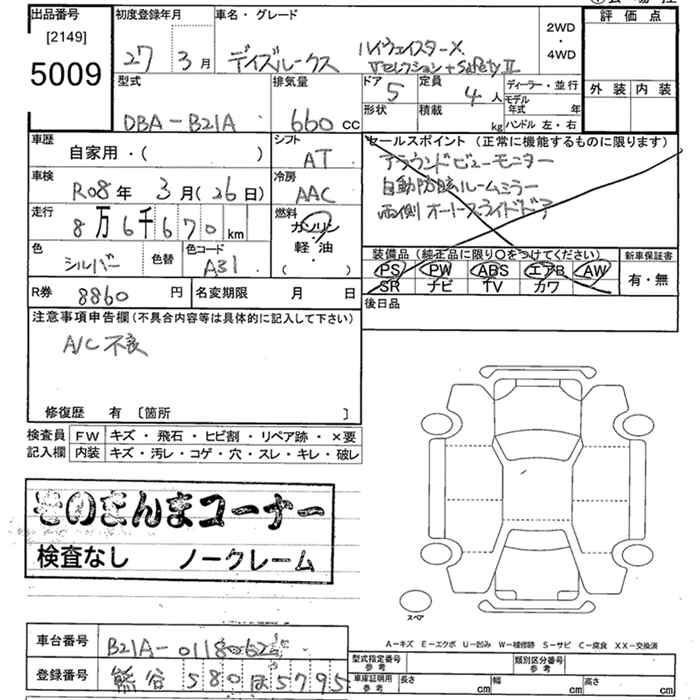 出品番号 初度登録年月 車名・グレード
[2149] 27年 3月 デイズルークス ハイウェイスターX 2WD・4WD 評価点
5009 Vセレクション+SafetyⅡ
型式 排気量 ドア 5 定員 4人 ディーラー・並行 外装 内装
DBA-B21A 660cc 形状 積載 kg モデル年式 年 ハンドル 左・右
車歴 自家用・( ) シフト AT セールスポイント (正常に機能するものに限ります)
アラウンドビューモニター
車検 R08年 3月(26日) 冷房 AAC 自動防眩ルームミラー
走行 8万6千670km 燃料 ガソリン 両側オートスライドドア
軽・油
( )
色 シルバー 色替 色コード A31 装備品 (純正品に限り〇をつけてください) 新車保証書
PS PW ABS エアB AW 有・無
SR ナビ TV カワ
R券 8860円 名変期限 月 日 後日品
注意事項申告欄 (不具合内容等は具体的に記入して下さい)
A/C 不良
修復歴 有 〔箇所 〕
検査員 FW キズ・飛石・ヒビ割・リペア跡・×要
記入欄 内装 キズ・汚レ・コゲ・穴・スレ・キレ・破レ
そのまんまコーナー
検査なし ノークレーム
スペア
A-キズ E-エクボ U-凹み W-補修跡 S-サビ C-腐食 XX-交換済
車台番号 B21A-0118062 型式指定番号 参考 類別区分番号 参考
登録番号 熊谷 580 ほ 5795 車庫証明用 参考 長さ cm 幅 cm 高さ cm